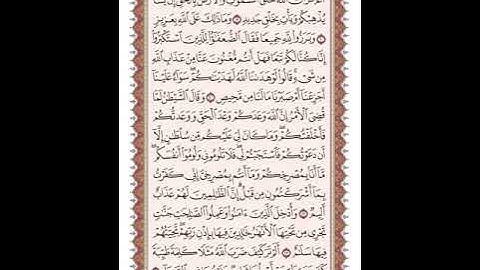 يُذْهِبْكُمْ وَيَأْتِ بِخَلْقٍ جَدِيدٍ ۝ وَمَا ذَٰلِكَ عَلَى ٱللَّهِ بِعَزِيزٍ
۝ وَبَرَزُوا۟ لِلَّهِ جَمِيعًا فَقَالَ ٱلضُّعَفَٰٓؤُا۟ لِلَّذِينَ ٱسْتَكْبَرُوٓا۟
إِنَّا كُنَّا لَكُمْ تَبَعًا فَهَلْ أَنتُم مُّغْنُونَ عَنَّا مِنْ عَذَابِ ٱللَّهِ
مِن شَىْءٍ ۚ قَالُوا۟ لَوْ هَدَىٰنَا ٱللَّهُ لَهَدَيْنَٰكُمْ ۖ سَوَآءٌ عَلَيْنَآ
أَجَزِعْنَآ أَمْ صَبَرْنَا مَا لَنَا مِن مَّحِيصٍ ۝ وَقَالَ ٱلشَّيْطَٰنُ لَمَّا
قُضِىَ ٱلْأَمْرُ إِنَّ ٱللَّهَ وَعَدَكُمْ وَعْدَ ٱلْحَقِّ وَوَعَدتُّكُمْ
فَأَخْلَفْتُكُمْ ۖ وَمَا كَانَ لِىَ عَلَيْكُم مِّن سُلْطَٰنٍ إِلَّآ
أَن دَعَوْتُكُمْ فَٱسْتَجَبْتُمْ لِى ۖ فَلَا تَلُومُونِى وَلُومُوٓا۟ أَنفُسَكُم ۖ
مَّآ أَنَا۠ بِمُصْرِخِكُمْ وَمَآ أَنتُم بِمُصْرِخِىَّ ۖ إِنِّى كَفَرْتُ
بِمَآ أَشْرَكْتُمُونِ مِن قَبْلُ ۗ إِنَّ ٱلظَّٰلِمِينَ لَهُمْ عَذَابٌ
أَلِيمٌ ۝ وَأُدْخِلَ ٱلَّذِينَ ءَامَنُوا۟ وَعَمِلُوا۟ ٱلصَّٰلِحَٰتِ جَنَّٰتٍ
تَجْرِى مِن تَحْتِهَا ٱلْأَنْهَٰرُ خَٰلِدِينَ فِيهَا بِإِذْنِ رَبِّهِمْ ۖ تَحِيَّتُهُمْ
فِيهَا سَلَٰمٌ ۝ أَلَمْ تَرَ كَيْفَ ضَرَبَ ٱللَّهُ مَثَلًا كَلِمَةً طَيِّبَةً